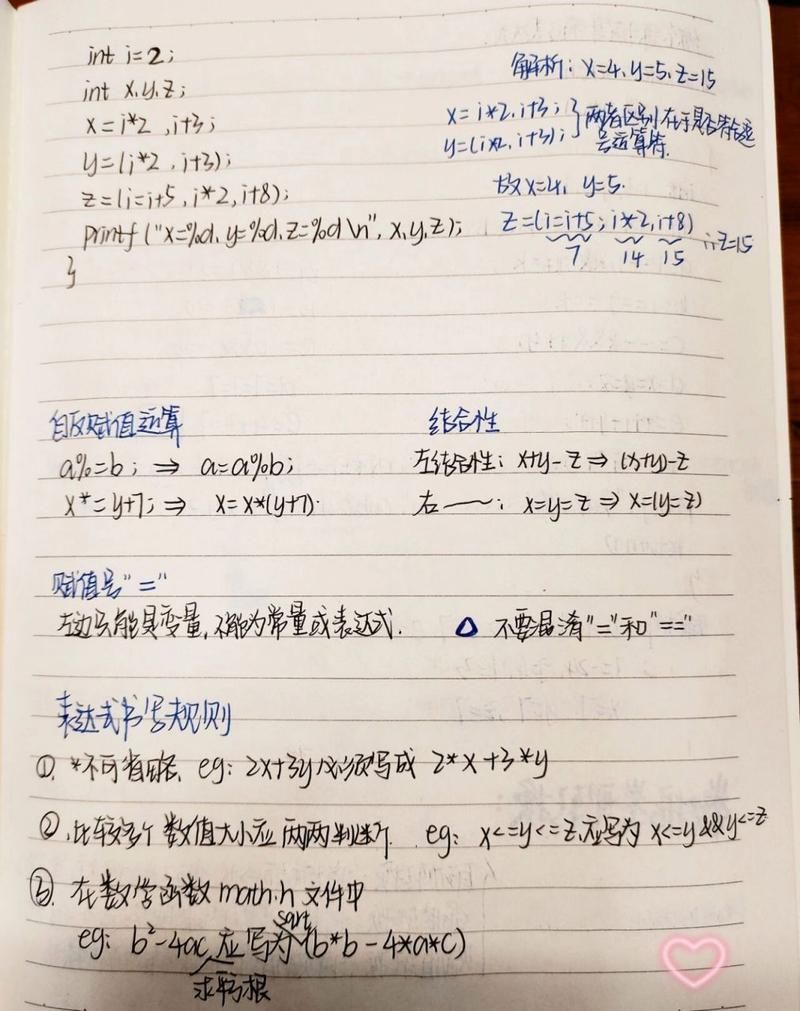 int i=2;
int x,y,z;
x=i*2 ,i+3;
y=(i*2 ,i+3);
z=(i=i+5 ,i*2,i+8);
printf ("x=%d, y=%d, z=%d \n", x,y,z);
}
解析: x=4, y=5, z=15
x=i*2, i+3;
y=(i*2, i+3); } 两者区别在于是否符合逗
号运算符.
故x=4, y=5.
z=(i=i+5; i*2, i+8) ∴z=15
7 14 15
自反赋值运算
a%=b; ⇒ a=a%b;
x*=y+7; ⇒ x=x*(y+7).
结合性
左结合性: x+y-z ⇒ (x+y)-z
右——: x=y=z ⇒ x=(y=z)
赋值号"="
左边只能是变量,不能为常量或表达式. △ 不要混淆"="和"=="
表达式书写规则
①. *不可省略. eg: 2x+3y必须写成 2*x+3*y
②. 比较多个数值大小应两两判断. eg: x<=y<=z,应写为 x<=y&&y<=z
③. 在数学函数math.h 文件中
sqrt
eg: b²-4ac 应写为 (b*b-4*a*c)
求平方根